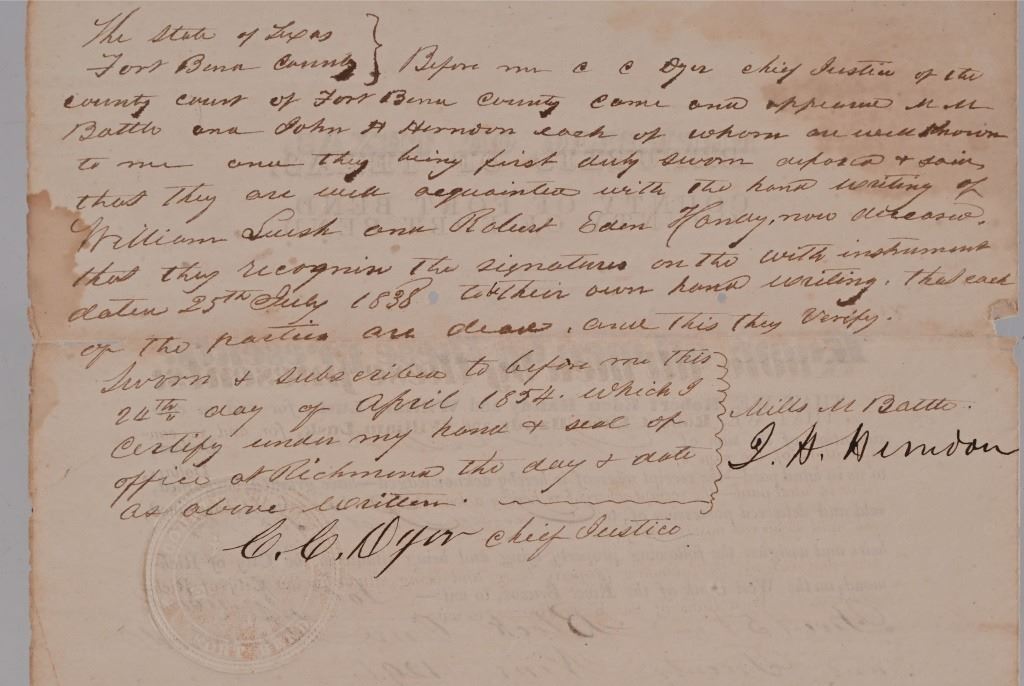 The State of Texas
Fort Bend County } Before me C C Dyer chief Justice of the
county court of Fort Bend County came and appeared M M
Battle and John H Herndon each of whom are well known
to me and they being first duly sworn deposed & said
that they are well acquainted with the hand writing of
William Lusk and Robert Eden Handy, now deceased,
that they recognize the signatures on the with instrument
dated 25th July 1838 to be their own hand writing. that each
of the parties are dead. and this they Verify.
Sworn & subscribed to before me this
24th day of April 1854. which I
certify under my hand & seal of
office at Richmond the day & date
as above written.
Mills M Battle.
J. H. Herndon
C. C. Dyer chief Justice